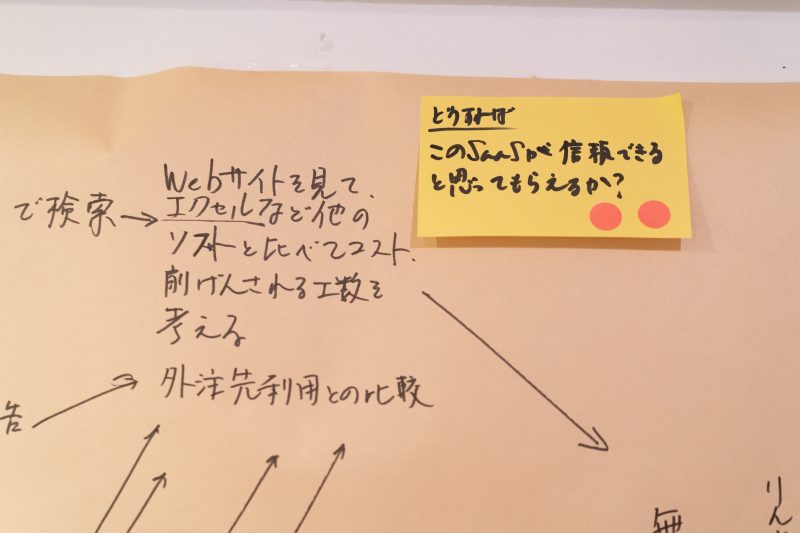 どうすれば
このSaaSが信頼できる
と思ってもらえるか?
で検索
Webサイトを見て、
エクセルなど他の
ソフトと比べてコスト、
削げんされる工数を
考える
外注先利用との比較
告
無
りん